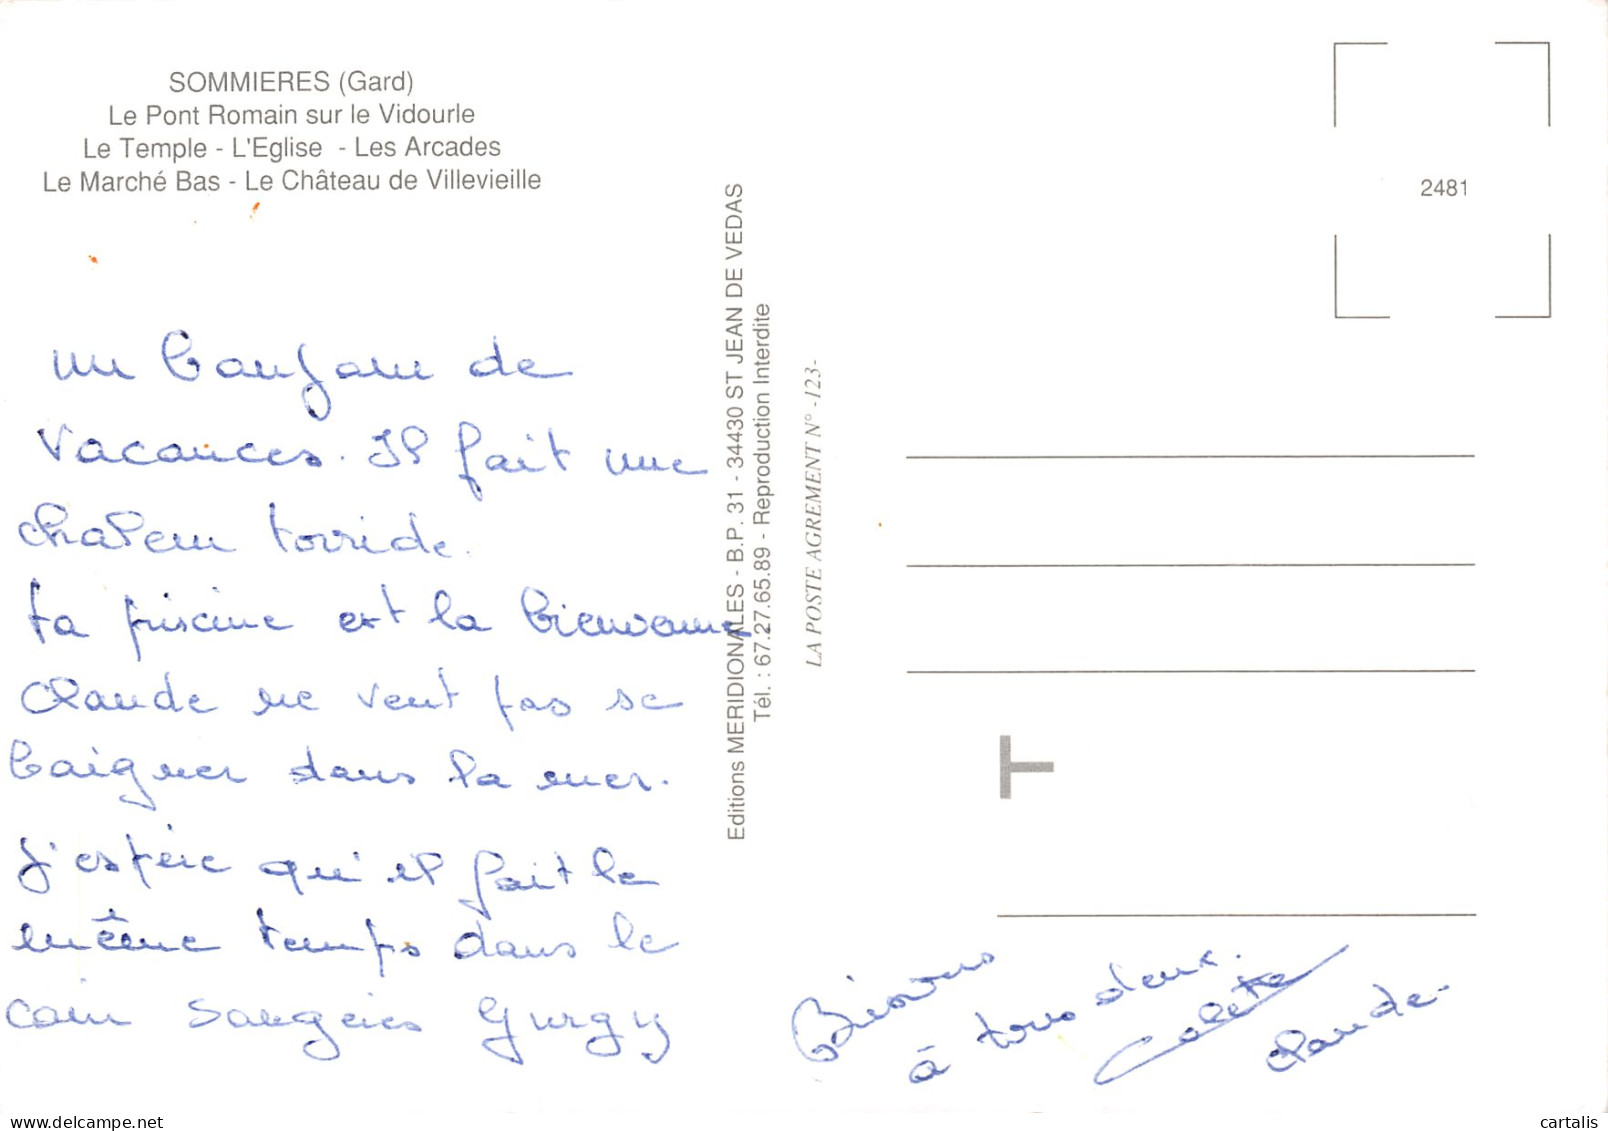 SOMMIERES (Gard)
Le Pont Romain sur le Vidourle
Le Temple - L'Eglise - Les Arcades
Le Marché Bas - Le Château de Villevieille
un bonjour de
vacances. Il fait une
chaleur torride.
la piscine est la bienvenue
Claude ne veut pas se
baigner dans la mer.
j'espère qu'il fait le
même temps dans le
coin Gurgy
Editions MERIDIONALES - B.P. 31 - 34430 ST JEAN DE VEDAS
Tél. : 67.27.65.89 - Reproduction Interdite
LA POSTE AGREMENT N° -123-
2481
T
Bisous
à tous deux.
Colette
Claude-
cartalis
www.delcampe.net